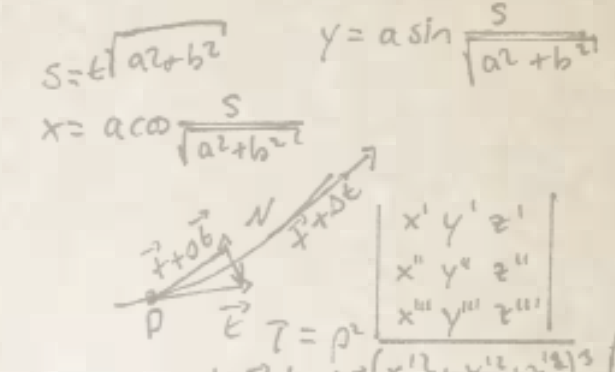 s=t√a²+b²
y = a sin s/√a²+b²
x = a cos s/√a²+b²
N
t⃗+Δt⃗
t⃗+Δt
P
t⃗
T = ρ²
x' y' z'
x" y" z"
x''' y''' z'''